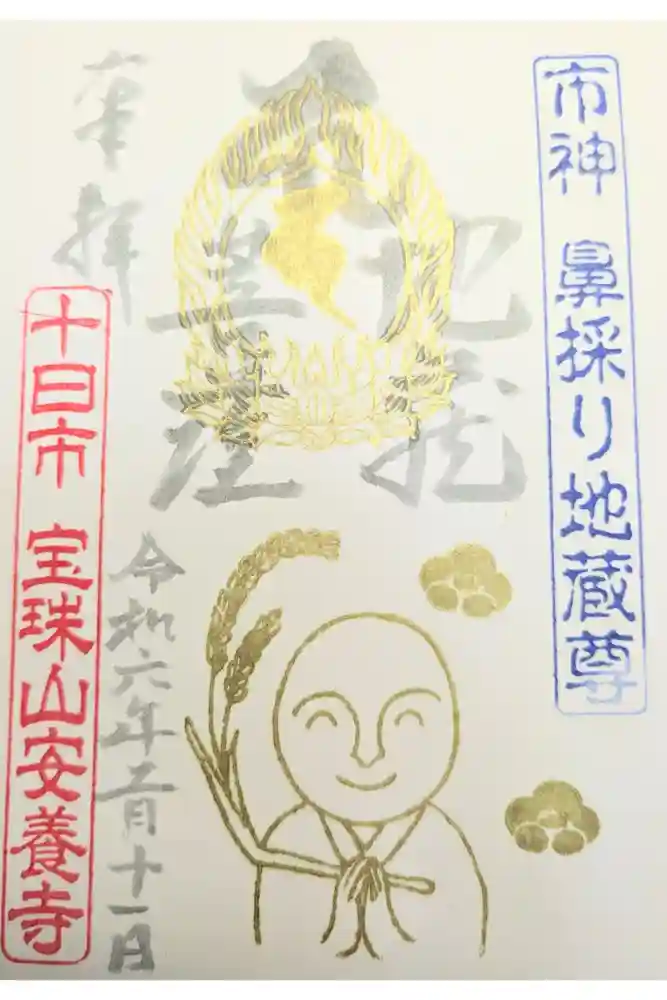 市神 鼻採り地蔵尊
地蔵
奉拝
令和六年二月十一日
十日市 宝珠山安養寺